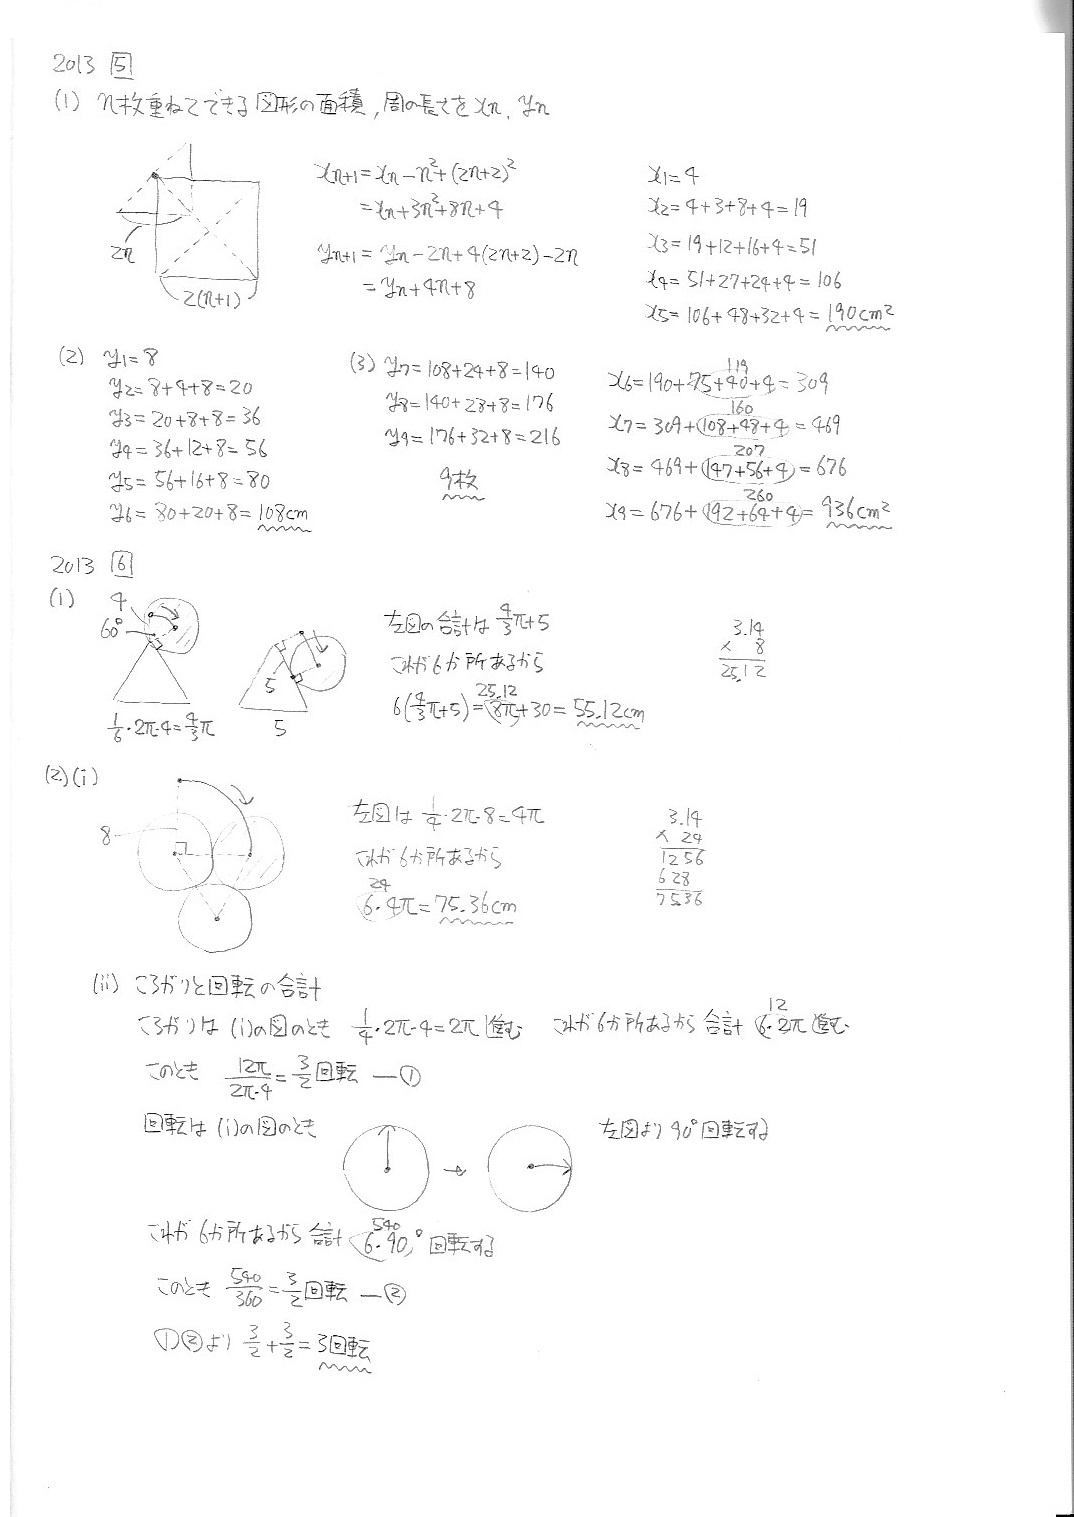 2013 5
(1) n枚重ねてできる図形の面積,周の長さをxn, yn
2n
2(n+1)
xn+1=xn-n²+(2n+2)²
=xn+3n²+8n+4
yn+1=yn-2n+4(2n+2)-2n
=yn+4n+8
x1=4
x2=4+3+8+4=19
x3=19+12+16+4=51
x4=51+27+24+4=106
x5=106+48+32+4=190cm²
(2) y1=8
y2=8+4+8=20
y3=20+8+8=36
y4=36+12+8=56
y5=56+16+8=80
y6=80+20+8=108cm
(3) y7=108+24+8=140
y8=140+28+8=176
y9=176+32+8=216
9枚
119
x6=190+75+40+4=309
160
x7=309+(108+48+4)=469
207
x8=469+(147+56+4)=676
260
x9=676+(192+64+4)=936cm²
2013 6
(1) 4
60°
1/6・2π・4=4/3π
5
5
左図の合計は4/3π+5
これが6か所あるから
25.12
6(4/3π+5)=8π+30=55.12cm
3.14
× 8
25.12
(2)(i)
8
左図は1/4・2π・8=4π
これが6か所あるから
24
6・4π=75.36cm
3.14
× 24
1256
628
75.36
(ii) ころがりと回転の合計
ころがりは(i)の図のとき 1/4・2π・4=2π進む これが6か所あるから 合計 6・2π進む
12
このとき 12π/2π・4=3/2回転 ―①
回転は(i)の図のとき
左図より90°回転する
540
これが6か所あるから 合計 6・90°回転する
このとき 540/360=3/2回転 ―②
①②より 3/2+3/2=3回転